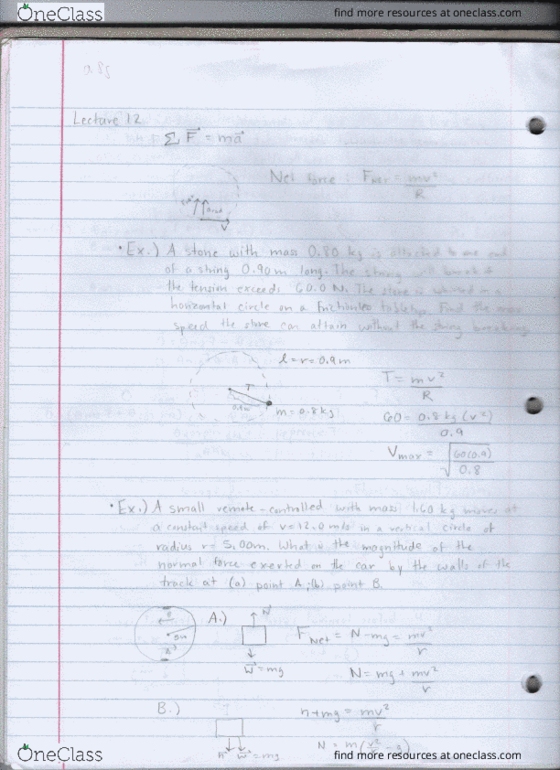 OneClass
find more resources at oneclass.com
Lecture 12
Σ F = ma
Net force : F_Net = mv²/R
V
• Ex.) A stone with mass 0.80 kg is attached to one end
of a string 0.90m long. The string will break if
the tension exceeds 60.0 N. The stone is whirled in a
horizontal circle on a frictionless tabletop. Find the
speed the stone can attain without the string breaking
l = r = 0.9m
T
m = 0.8kg
T = mv²/R
60 = 0.8kg (v²)/0.9
V_max = √(60(0.9)/0.8)
• Ex.) A small remote-controlled with mass 1.60 kg moves at
a constant speed of v=12.0 m/s in a vertical circle of
radius r= 5.00m. What is the magnitude of the
normal force exerted on the car by the walls of the
track at (a) point A ;(b) point B
5m
A.)
N
W = mg
F_Net = N - mg = mv²/r
N = mg + mv²/r
B.)
W = mg
n + mg = mv²/r
N = m(v²/r - g)
OneClass
find more resources at oneclass.com